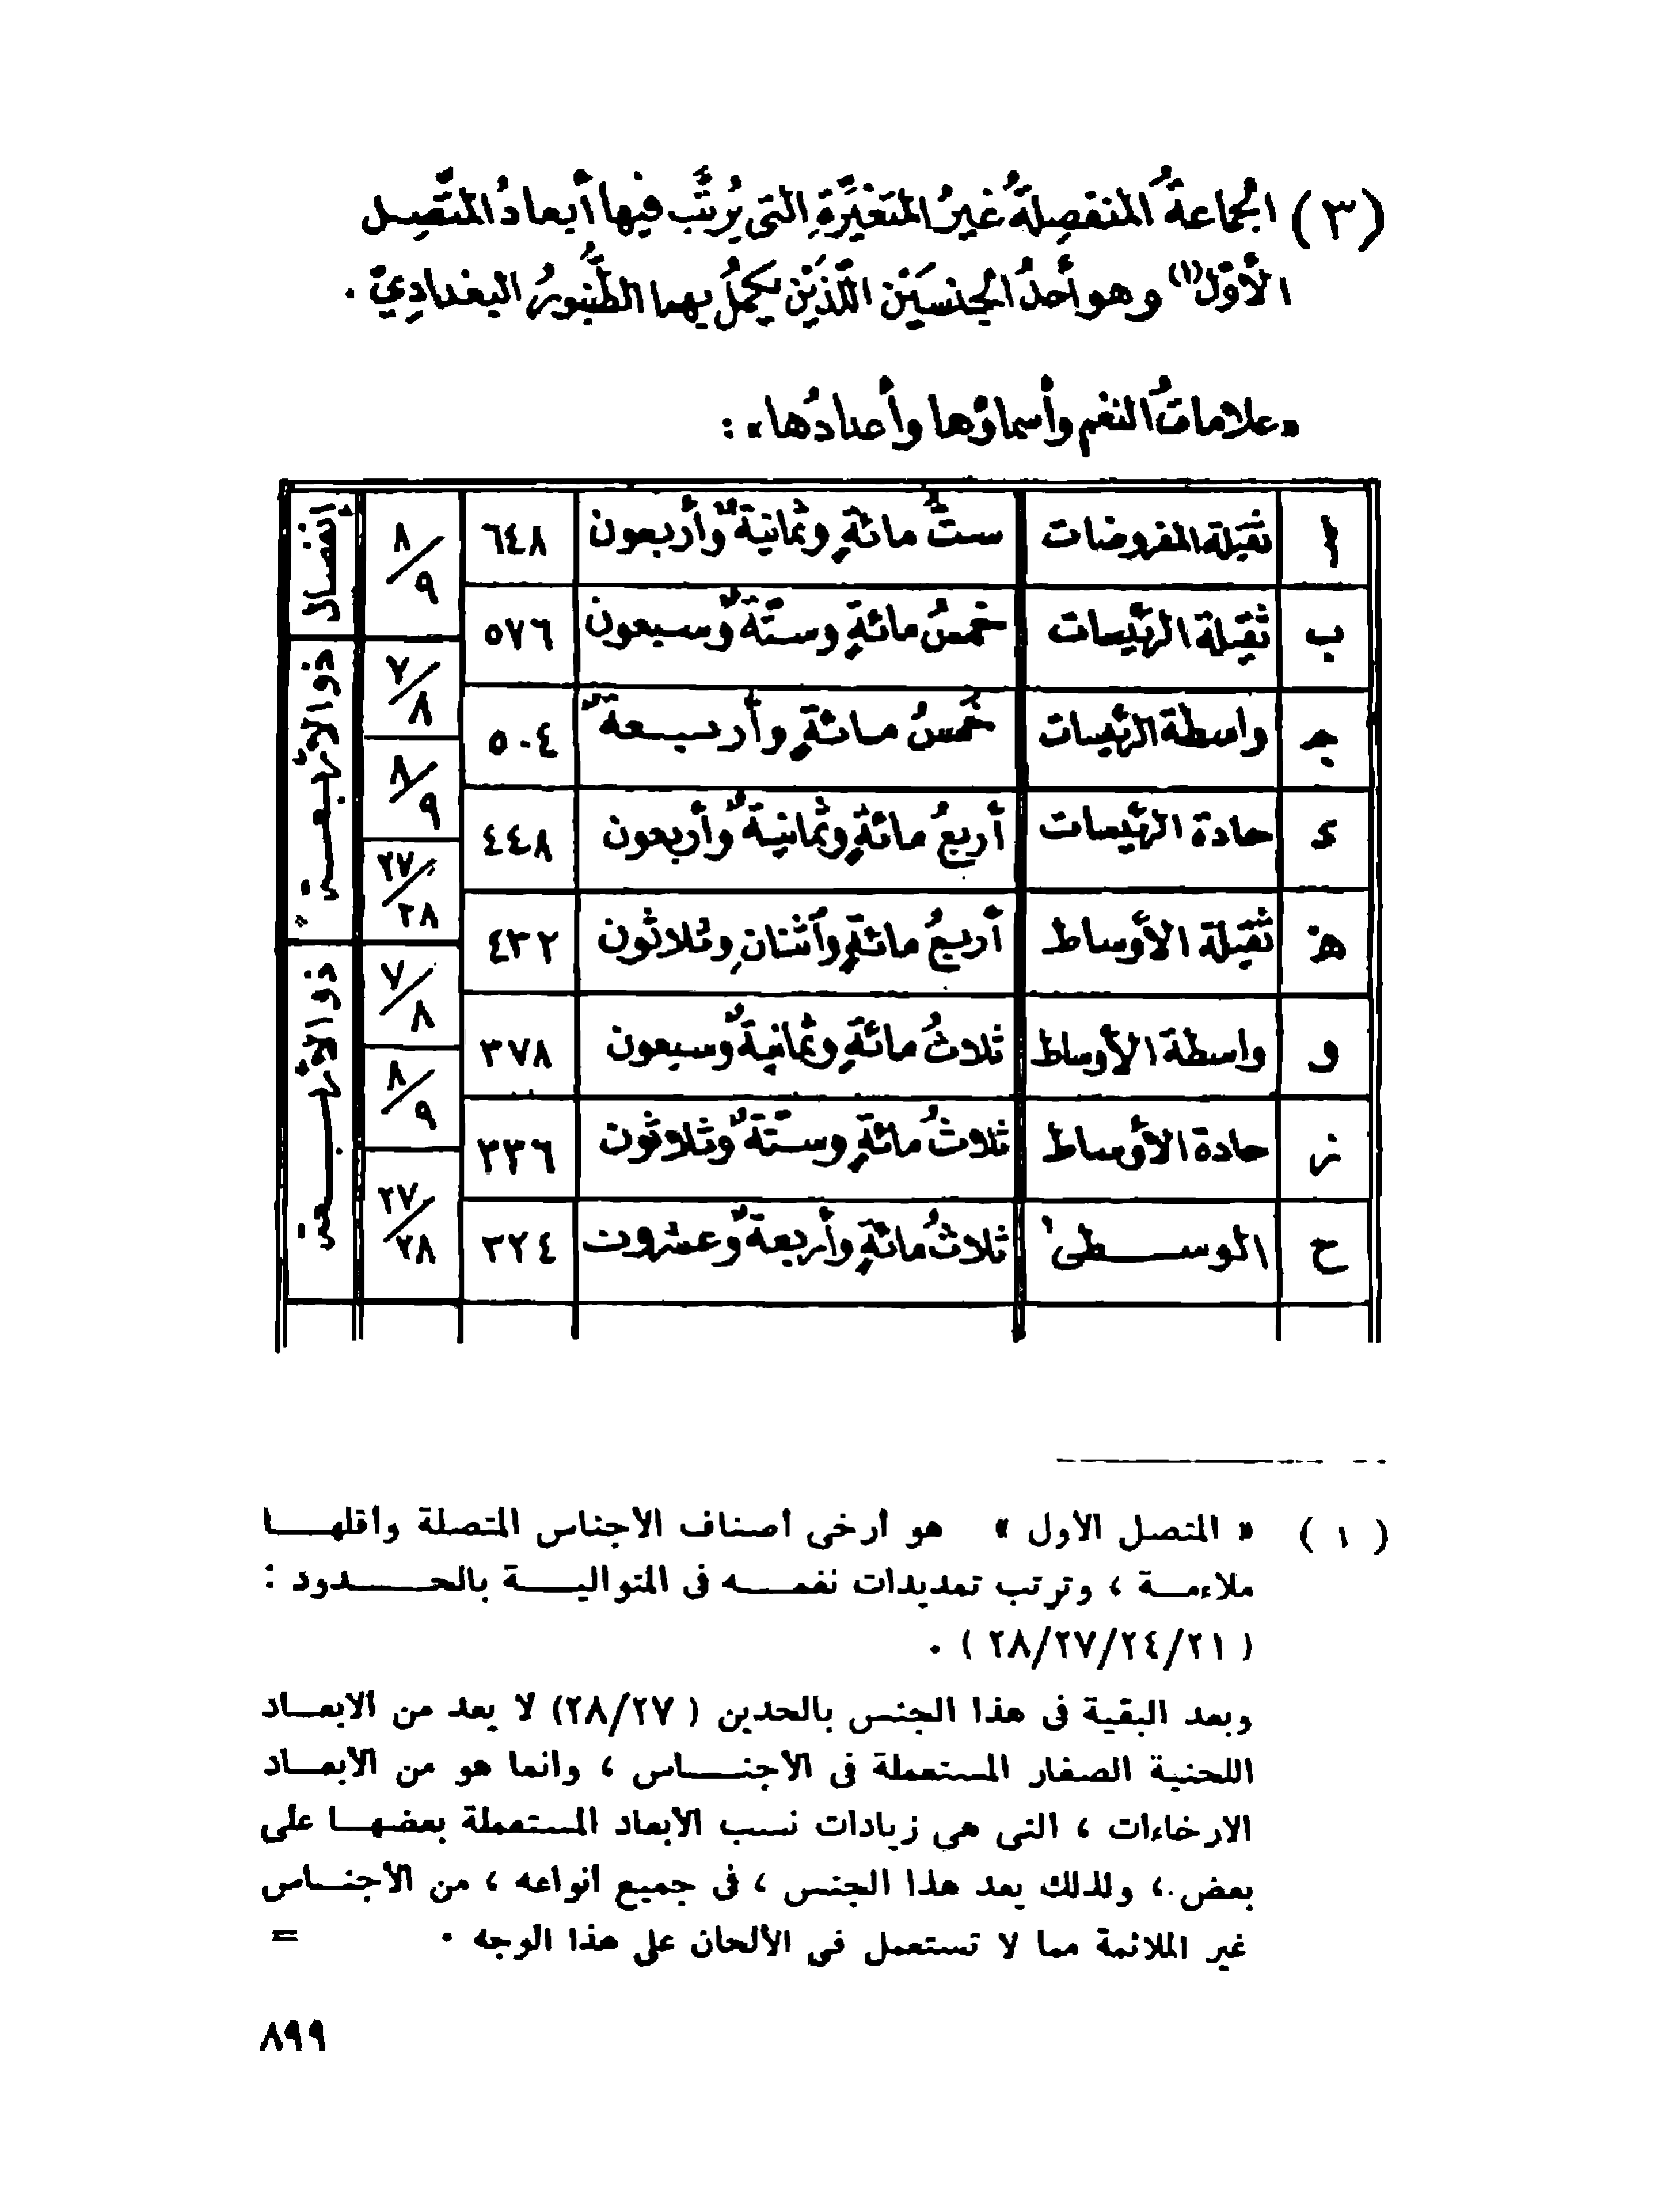 (٣) الجماعةُ المنفصِلةُ غيرُ المتغيِّرةِ التى يُرتَّب فيها أبعادُ المتَّصِل
الأوّل(١) وهو أحدُ الجنسَيَن اللّذَيْن يكمُلُ بهما الطُّنبورُ البغدادِيّ .
«علاماتُ النغم وأسماؤها وأعدادُها» :
ا ثقيلة المفروضات ستّ مائةٍ وثمانيةٌ وأربعون ٦٤٨ ٨/٩ إنفصال
ب ثقيلة الرئيسات خمسُ مائةٍ وستّةٌ وسبعون ٥٧٦ ٧/٨ ذو الأربعة
جـ واسطة الرئيسات خمسُ مائةٍ وأربعة ٥٠٤ ٨/٩
د حادة الرئيسات أربعُ مائةٍ وثمانيةٌ وأربعون ٤٤٨ ٢٧/٢٨
هـ ثقيلة الأوساط أربعُ مائةٍ وآثنانِ وثلاثون ٤٣٢ ٧/٨ ذو الأربعة
و واسطة الأوساط ثلاثُ مائةٍ وثمانيةٌ وسبعون ٣٧٨ ٨/٩
ز حادة الأوساط ثلاثُ مائةٍ وستّةٌ وثلاثون ٣٣٦ ٢٧/٢٨
ح الوسطى ثلاثُ مائةٍ وأربعةٌ وعشرون ٣٢٤
( ١ ) « المتصل الأول » هو أرخى أصناف الأجناس المتصلة وأقلها
ملاءمة ، وترتب تمديدات نغمه فى المتوالية بالحدود :
( ٢٨/٢٧/٢٤/٢١ ) .
وبعد البقية فى هذا الجنس بالحدين ( ٢٨/٢٧) لا يعد من الابعاد
اللحنية الصغار المستعملة فى الأجناس ، وانما هو من الأبعاد
الارخاءات ، التى هى زيادات نسب الأبعاد المستعملة بعضها على
بعض ، ولذلك يعد هذا الجنس ، فى جميع انواعه ، من الأجناس
غير الملائمة مما لا تستعمل فى الألحان على هذا الوجه . =
٨٩٩